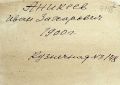 Аникеев
Иван Захарович
1900г.
Кузнечная № 148